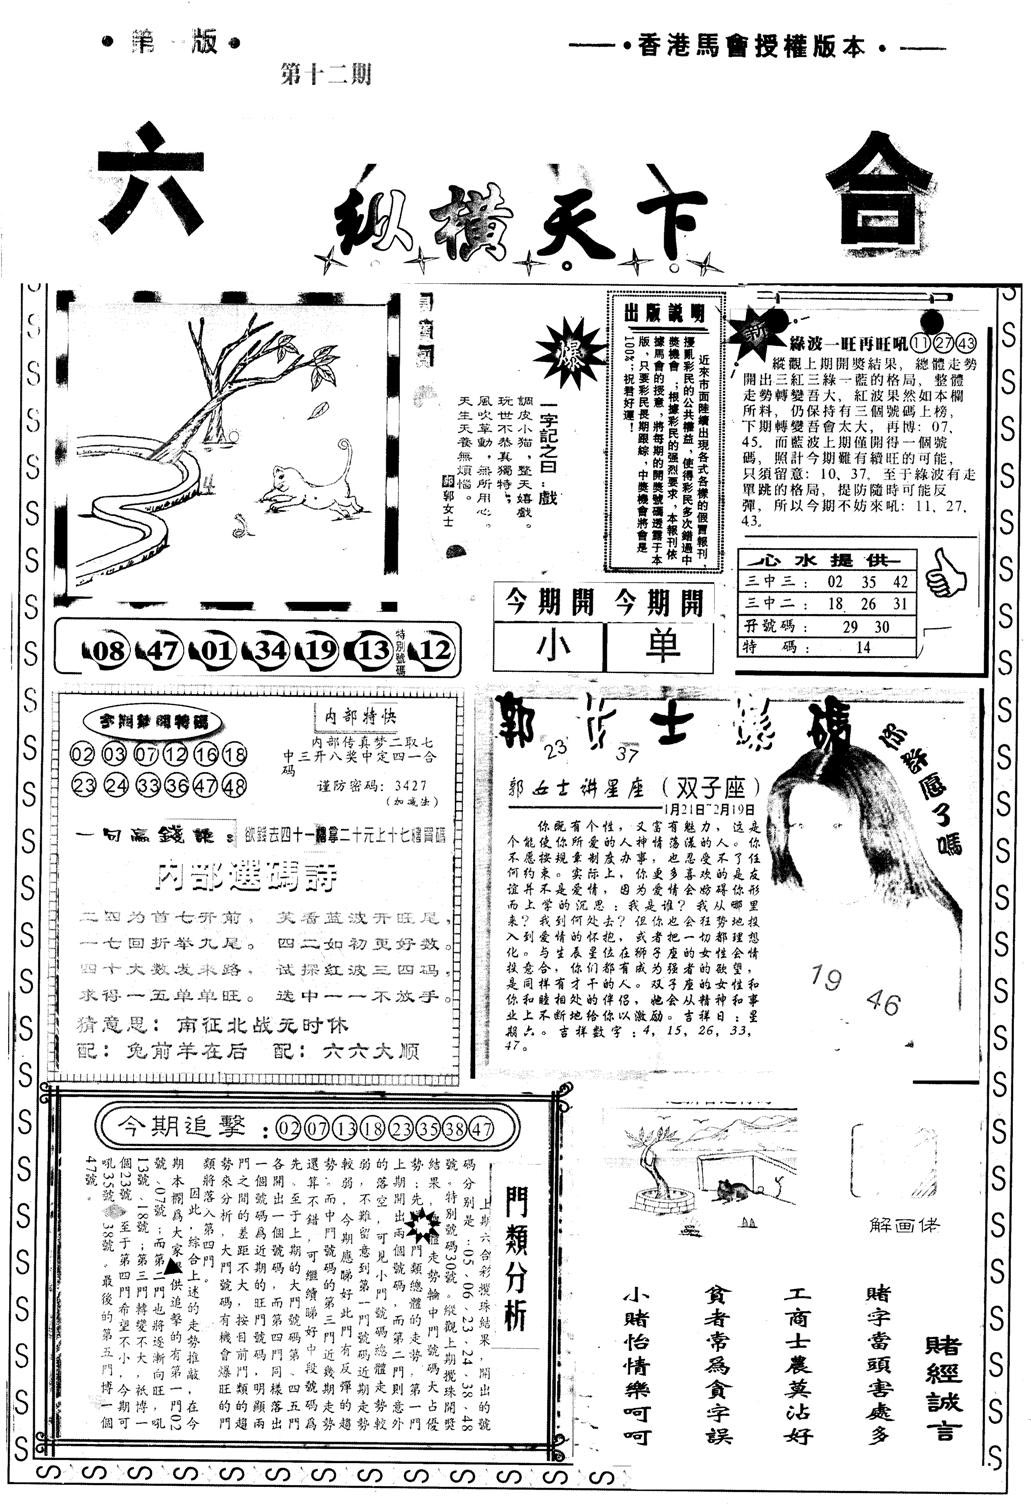 第一版
香港馬會授權版本
第十二期
六
合
纵橫天下
出版說明
近來市面陸續出現各式各樣的假冒報刊,
擾亂彩民的公共權益,使得彩民多次錯過中
獎機會;根據彩民的强烈要求,本報刊依
據馬會的授意,將每期的開獎號碼透露于本
版,只要彩民長期跟綜,中獎機會將會是
100%;祝君好運!
爆
一字記之曰:戲
調皮小猫,整天嬉戲。
玩世不恭真獨特,
風吹草動,無所用心。
天生天養無煩惱。
郭女士
新
綠波一旺再旺吼 11 27 43
縱觀上期開獎結果,總體走勢
開出三紅三綠一藍的格局,整體
走勢轉變吾大,紅波果然如本欄
所料,仍保持有三個號碼上榜,
下期轉變吾會太大,再博:07,
45.而藍波上期僅開得一個號
碼,照計今期難有續旺的可能,
只須留意:10、37,至于綠波有走
單跳的格局,提防隨時可能反
彈,所以今期不妨來吼:11、27,
43。
心水提供
三中三: 02 35 42
三中二: 18 26 31
孖號碼: 29 30
特 碼: 14
今期開 今期開
小 单
08 47 01 34 19 13 特別號碼 12
02 03 07 12 16 18
23 24 33 36 47 48
内部特快
内部传真梦二取七
中三开八奖中定四一合
码
谨防密码:3427
(加减法)
欲錢去四十一 二十元上十七 買碼
内部選碼詩
二四为首七开前, 笑看蓝波开旺尾,
一七回折举九尾。 四二如初更好数。
四十大数发来路, 试探红波三四码,
求得一五单单旺。 选中一一不放手。
猜意思:南征北战无时休
配:兔前羊在后 配:六六大顺
郭 士 碼
23 37
你許愿了嗎
郭女士讲星座(双子座)
1月21日~2月19日
你既有个性,又富有魅力,这是
个能使你所爱的人神情荡漾的人。你
不愿按规章制度办事,也忍受不了任
何约束。实际上,你更多喜欢的是友
谊并不是爱情,因为爱情会妨碍你形
而上学的沉思:我是谁?我从哪里
来?我到何处去?但你也会狂势地投
入到爱情的怀抱,或者把一切都理想
化。与生辰星位在狮子座的女性会情
投意合,你们都有成为强者的欲望,
是同样有才干的人。双子座的女性和
你和睦相处的伴侣,她会从精神和事
业上不断地给你以激励。吉祥日:星
期六。吉祥数字:4,15,26,33,
47。
19 46
今期追擊:02 07 13 18 23 35 38 47
門類分析
上期六合彩攪珠結果,開出的號
碼分別是:05、06、23、24、38、48
號。特別號碼30號。縱觀上期攪珠開獎
結果, 體走勢輪中門號碼大占優
勢;先 門類總體的走勢,第一門
上期開出兩個號碼,而第二門則意外
的落空,可見小門號碼總體走勢較
弱,不難留意到第一門號碼近期走勢
較弱,今期應睇好此門有反彈的趨
勢。而中門號碼的第三門近幾期走勢
還算不錯,可繼續睇好中段號碼爲
先。至于上期的大門號碼第四、五門
各開出一個號碼,而第四門同樣落出
一個號碼爲近期的旺門號碼,明顯兩
門之間的差距不大,按目前門類的趨
勢來分析,大門號碼有機會爆旺的門
類將落入第四門。
因此,綜合上述的走勢推敲,在今
期本欄爲大家 供追擊的有第一門02
號、07號;而第二門也將逐漸向旺,吼
13號、18號;第三門轉變不大,祇博一
個23號 至于第四門希望不小,今期可
吼35號 38號。最後的第五門博一個
47號。
解画佬
賭經誠言
賭字當頭害處多
工商士農莫沾好
貧者常為貪字誤
小賭怡情樂呵呵